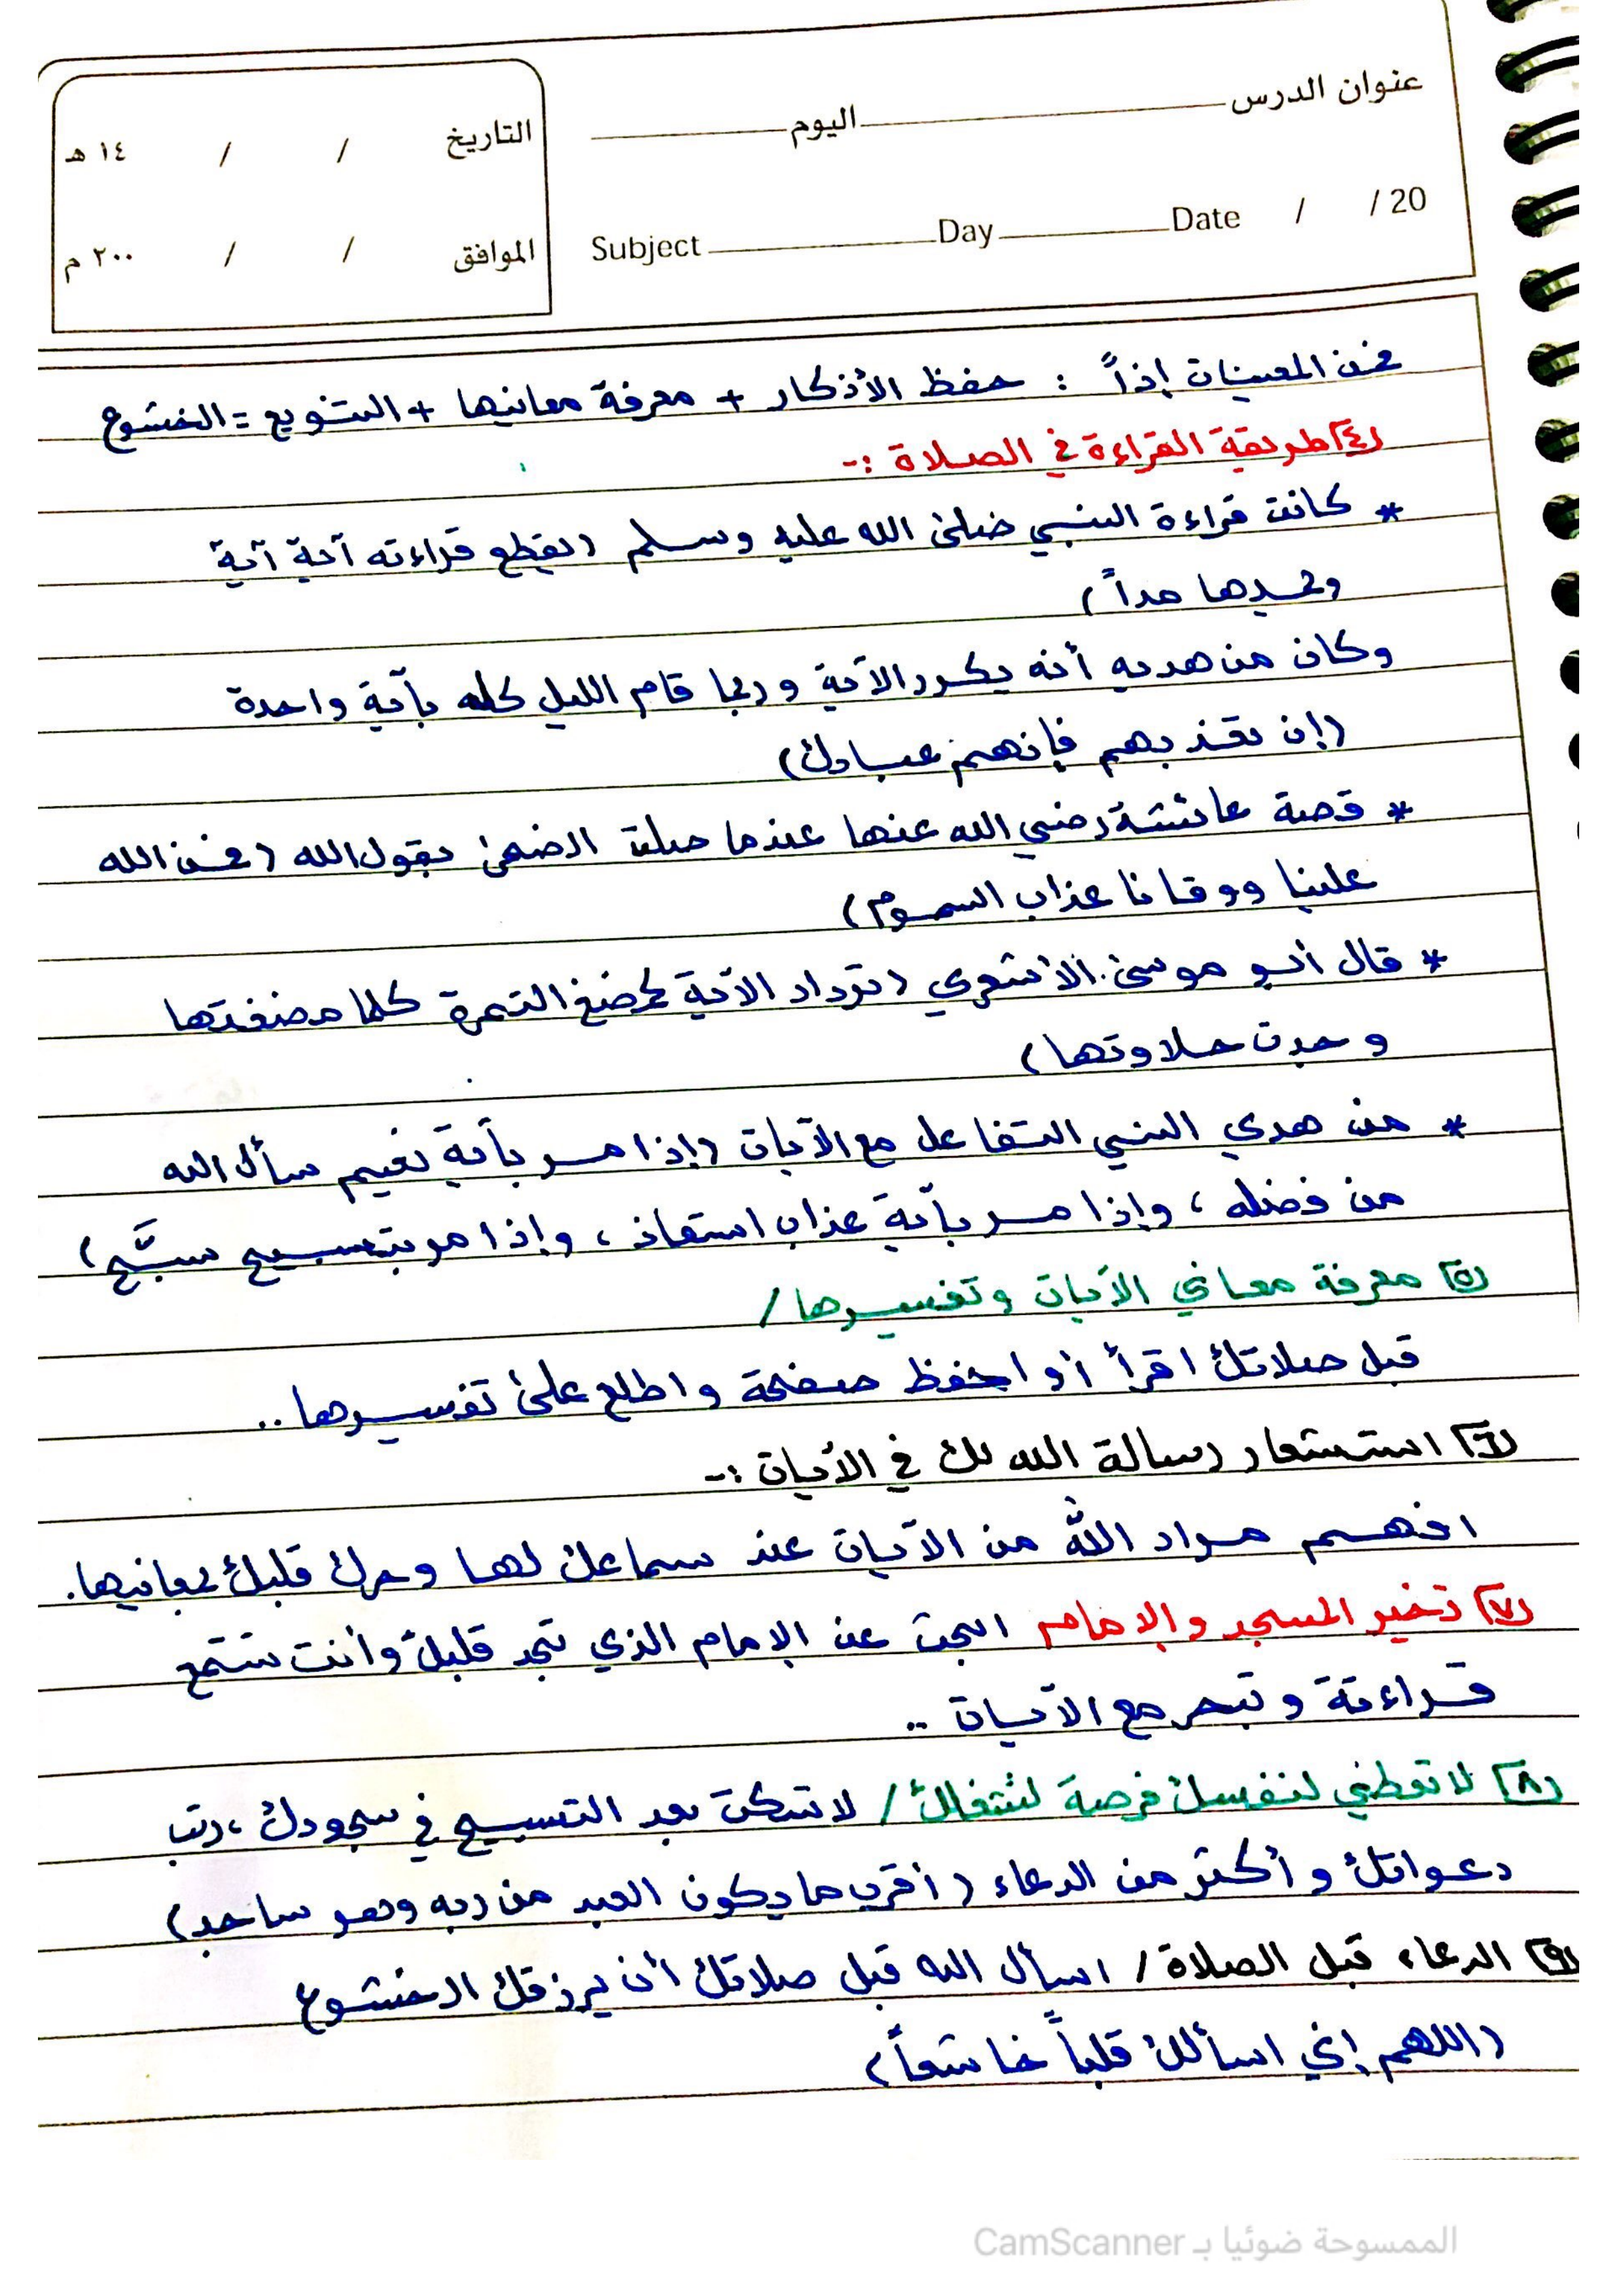 عنوان الدرس اليوم
التاريخ / / ١٤ هـ
Subject Day Date / / 20
الموافق / / ٢٠٠ م
فمن المعينات إذاً : حفظ الأذكار + معرفة معانيها + التنويع = الخشوع
٤) طريقة القراءة في الصلاة :-
* كانت قراءة النبي صلى الله عليه وسلم (يقطع قراءته آية آية
ويمدها مداً)
وكان من هديه أنه يكرر الآية وربما قام الليل كله بآية واحدة
(إن تعذبهم فإنهم عبادك)
* قصة عائشة رضي الله عنها عندما صلت الضحى بقول الله (فمن الله
علينا ووقانا عذاب السموم)
* قال أبو موسى الأشعري (ترداد الآية كمضغ التمرة كلما مضغتها
وجدت حلاوتها)
* من هدي النبي التفاعل مع الآيات (إذا مر بآية نعيم سأل الله
من فضله ، وإذا مر بآية عذاب استعاذ ، وإذا مر بتسبيح سبَّح)
٥) معرفة معاني الآيات وتفسيرها /
قبل صلاتك اقرأ أو احفظ صفحة واطلع على تفسيرها ..
٦) استشعار رسالة الله لك في الآيات :-
افهم مراد الله من الآيات عند سماعك لها وحرك قلبك بمعانيها.
٧) تخير المسجد والإمام ابحث عن الإمام الذي تجد قلبك وأنت تستمع
قراءته وتبحر مع الآيات ..
٨) لا تعطي لنفسك فرصة لتشغلك / لا تسكت بعد التسبيح في سجودك ، رتب
دعواتك وأكثر من الدعاء (أقرب ما يكون العبد من ربه وهو ساجد)
٩) الدعاء قبل الصلاة / اسأل الله قبل صلاتك أن يرزقك الخشوع
(اللهم إني اسألك قلباً خاشعاً)
الممسوحة ضوئيا بـ CamScanner